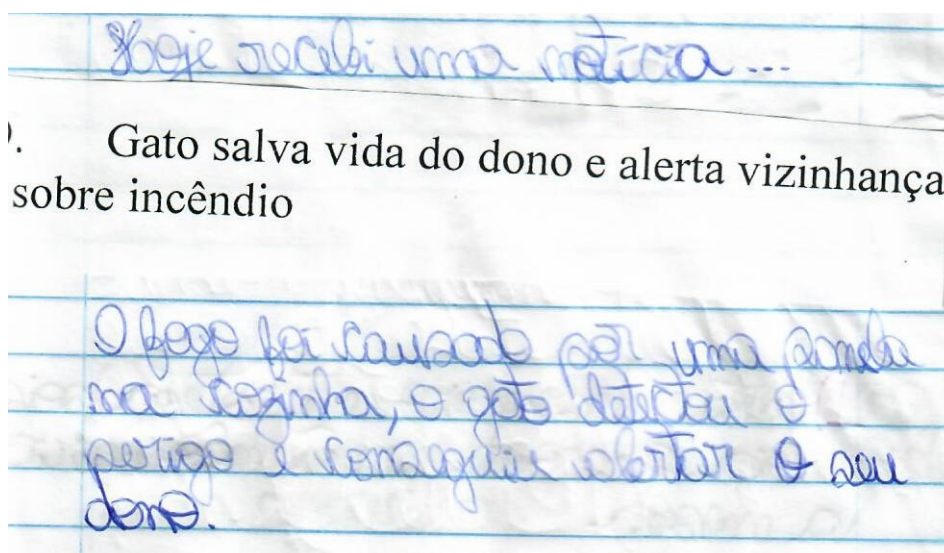 Hoje recebi uma notícia...
). Gato salva vida do dono e alerta vizinhança
sobre incêndio
O fogo foi causado por uma panela
na cozinha, o gato detectou o
perigo e conseguiu alertar o seu
dono.